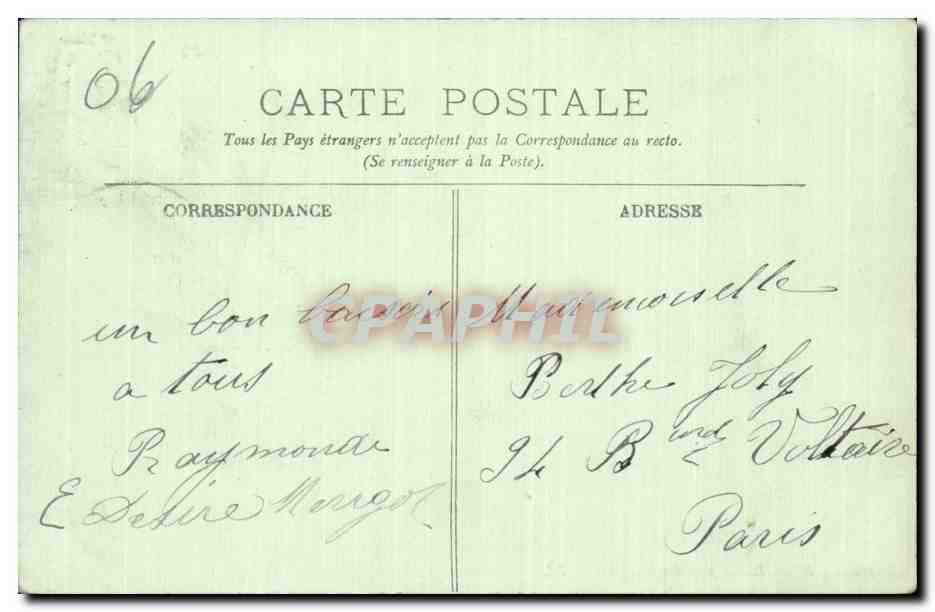 06
CARTE POSTALE
Tous les Pays étrangers n'acceptent pas la Correspondance au recto.
(Se renseigner à la Poste).
CORRESPONDANCE
un bon
a tous
Raymonde
E Desire
ADRESSE
Mademoiselle
Berthe Joly
94 Bard Voltaire
Paris
CPAPHIL